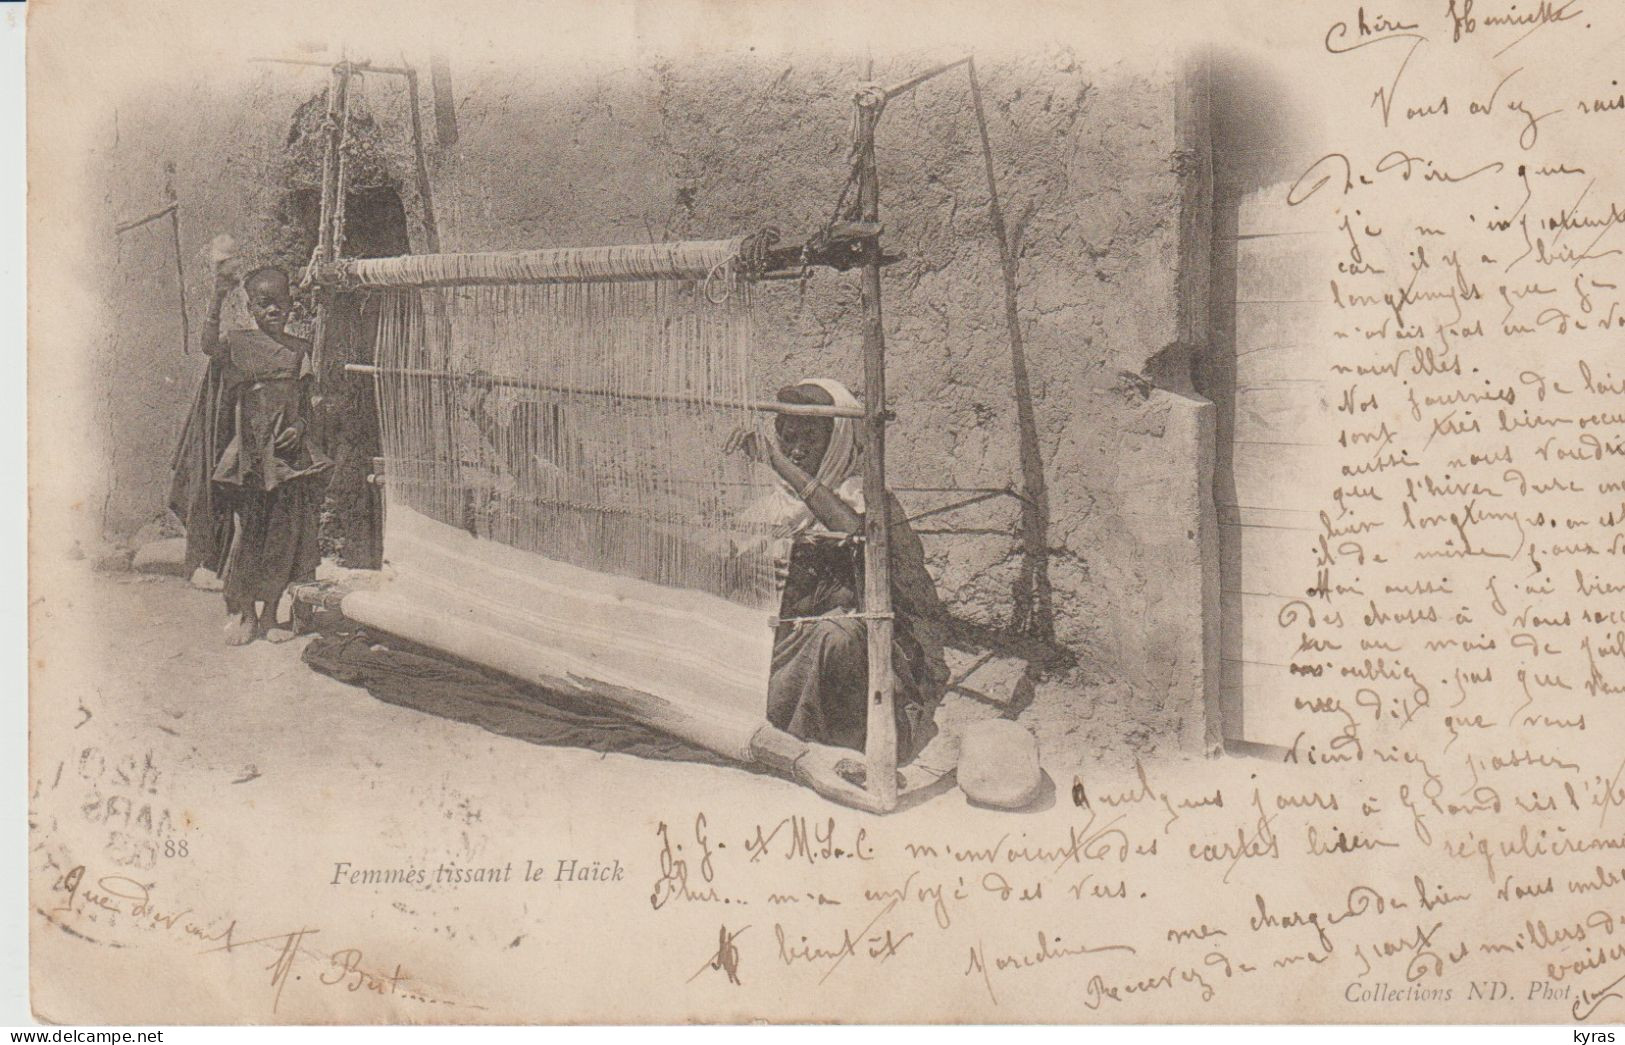 Chère Henriette.
Vous avez rais
de dire que
je m'impatient
car il y a bien
longtemps que je
n'avais pas eu de vo
nouvelles.
Nos journées de lois
sont très bien occu
aussi nous voudri
que l'hiver dure en
bien longtemps, en est
il de même pour vo
Moi aussi j'ai bien
des choses à vous raco
ter au mois de juil
n'oubliez pas que vous
avez dit que vous
viendriez passer
quelques jours à Grandris l'été
J. G. et M. La. C. m'envoient des cartes bien régulièreme
Fleur... m'a envoyé des vers.
A bientôt Marceline me charge de bien vous embra
Recevez de ma part des milliers de
baisers
Que devient
M. But......
88
Femmes tissant le Haïck
Collections ND. Phot.
MARS
03
kyras